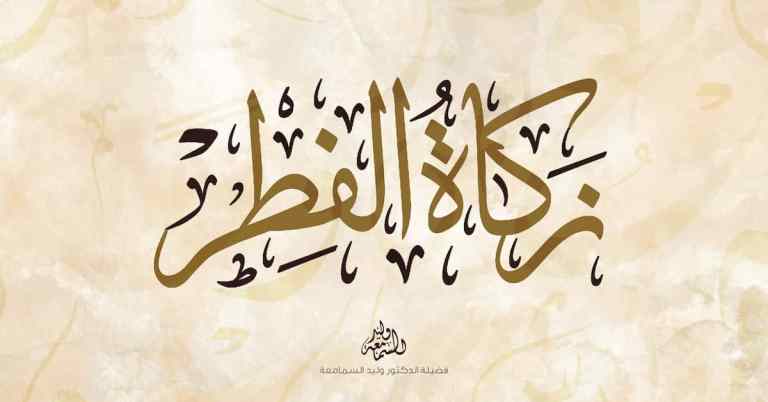 زَكَاةُ الفِطْرِ
وليد السمامعة
فضيلة الدكتور وليد السمامعة